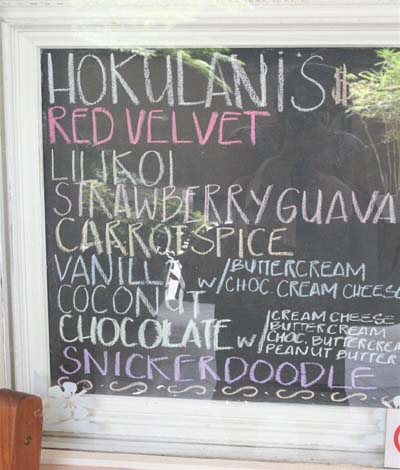 HOKULANI'S
RED VELVET
LILIKOI
STRAWBERRY GUAVA
CARROT SPICE
VANILLA w/ BUTTERCREAM
CHOC. CREAM CHEESE
COCONUT
CHOCOLATE w/ CREAM CHEESE
BUTTERCREAM
CHOC. BUTTERCREA
PEANUT BUTTER
SNICKERDOODLE